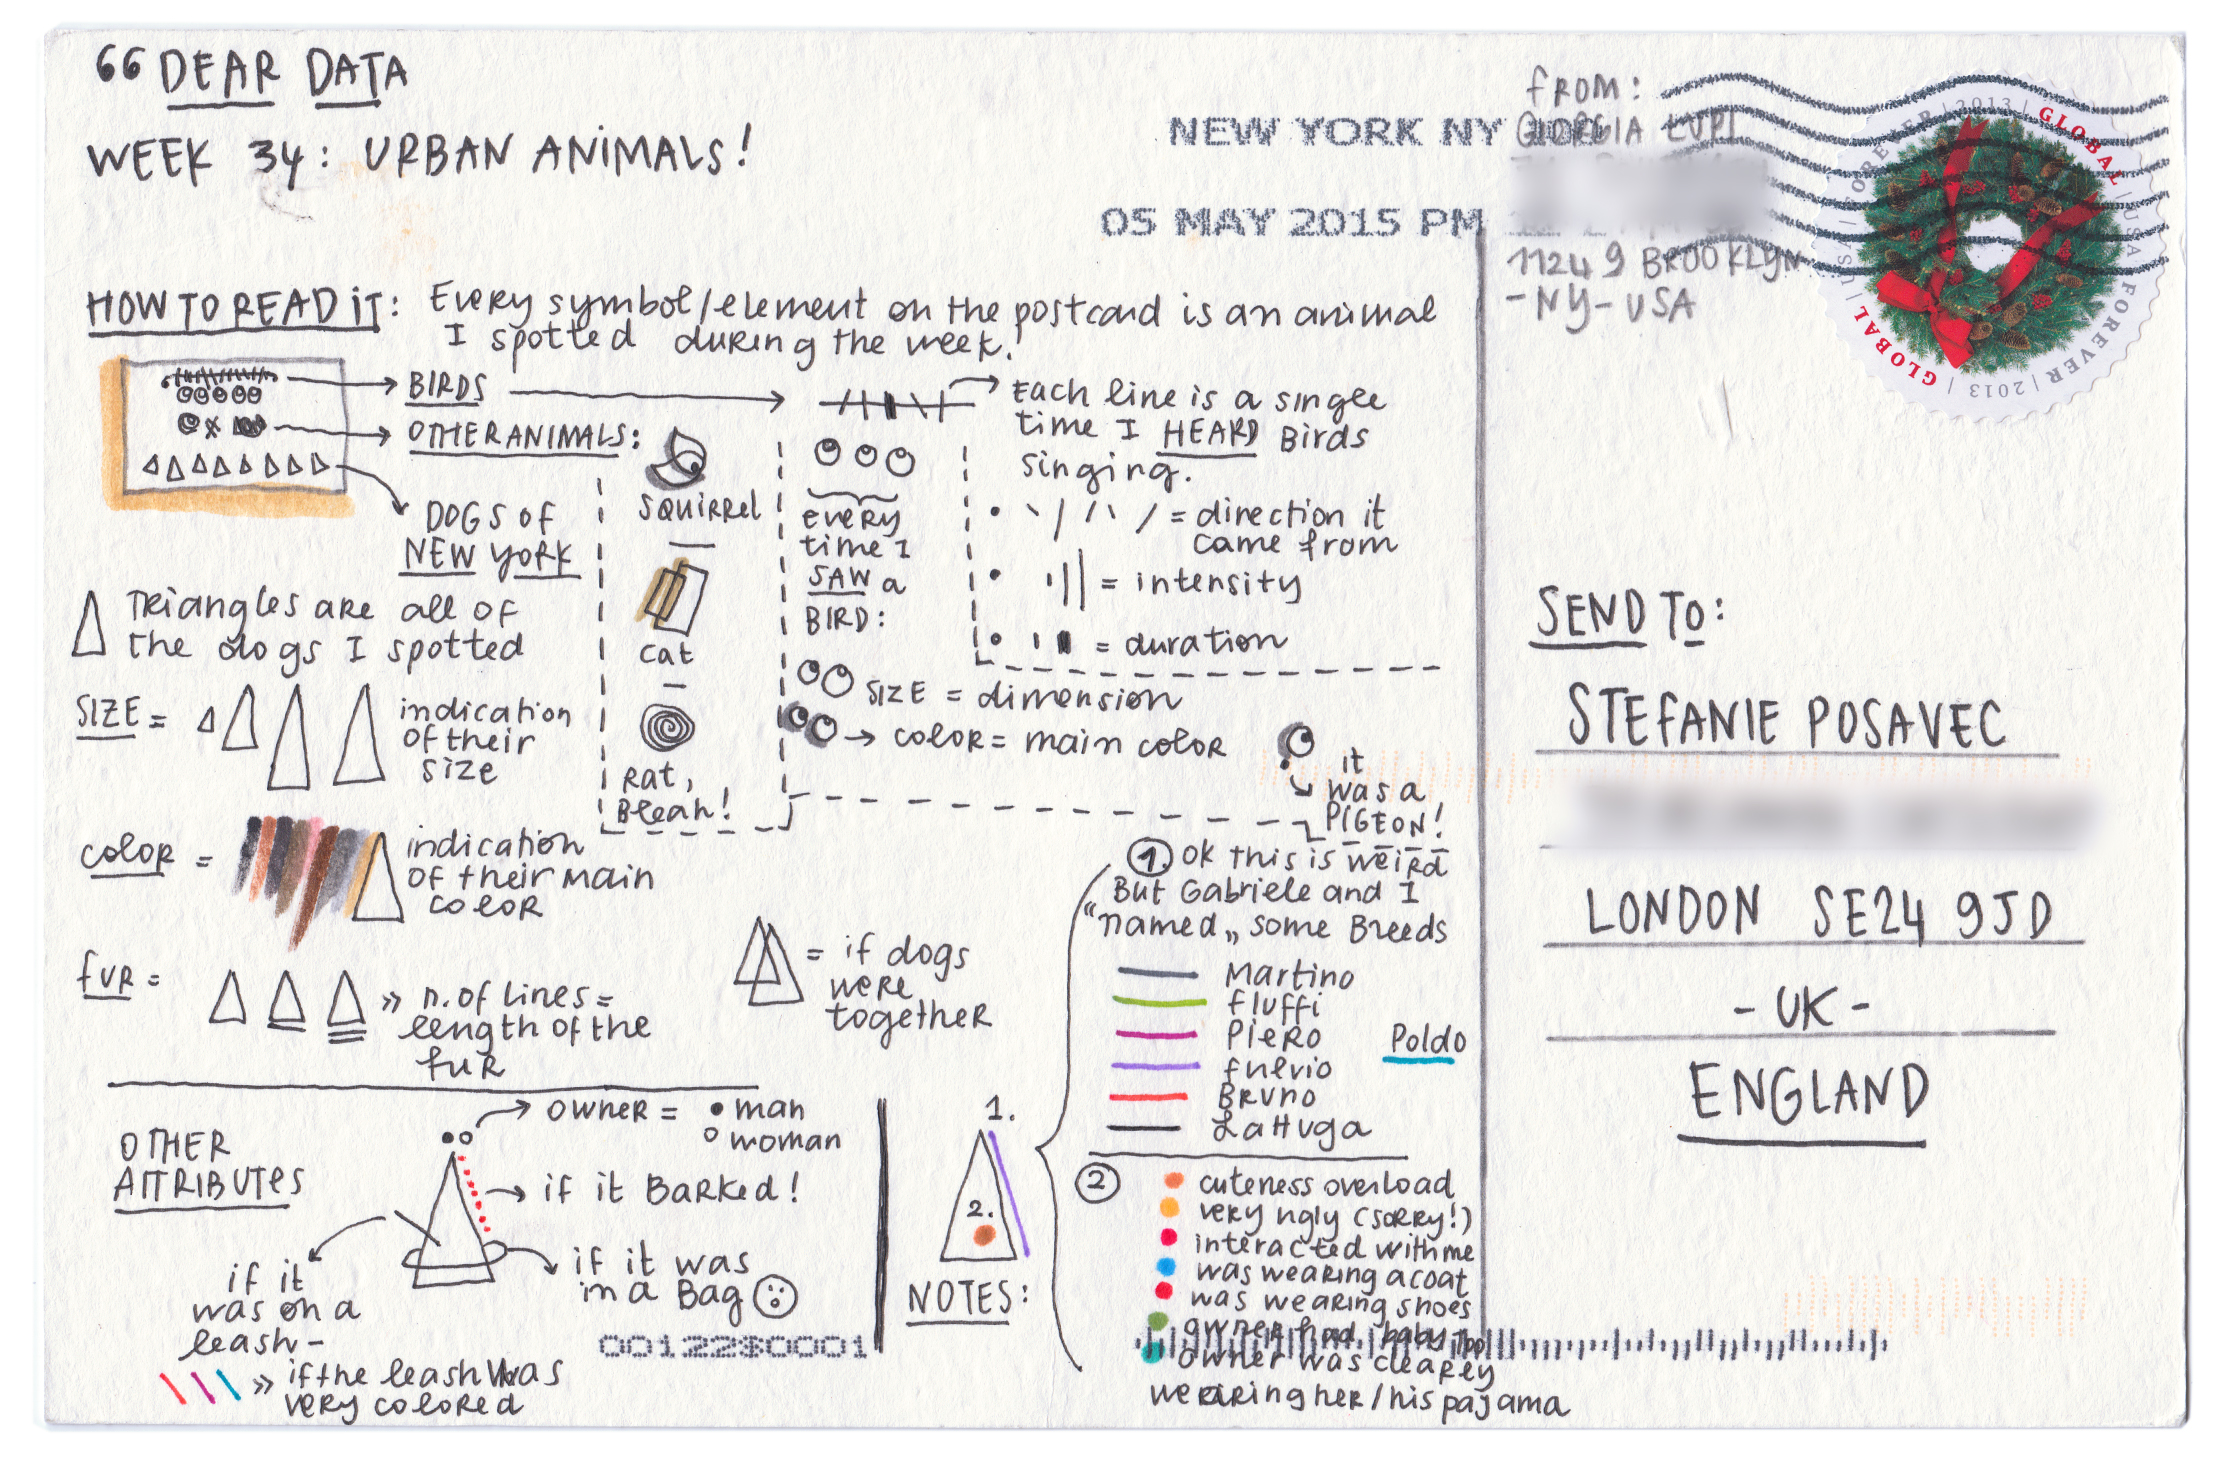 66 DEAR DATA
WEEK 34: URBAN ANIMALS!
NEW YORK NY
05 MAY 2015 PM
FROM:
GIORGIA LUPI
11249 BROOKLYN
-NY-USA
GLOBAL | USA FOREVER | 2013 | GLOBAL | USA FOREVER | 2013 |
HOW TO READ IT: Every symbol/element on the postcard is an animal
I spotted during the week.
BIRDS
OTHER ANIMALS:
DOGS OF
NEW YORK
SQUIRREL
cat
Rat,
Bleah!
Each line is a single
time I HEARD Birds
singing.
= direction it
came from
= intensity
= duration
every
time I
SAW a
BIRD:
SIZE = dimension
COLOR = main color
it
was a
PIGEON!
TRIANGLES are all of
the dogs I spotted
SIZE = indication
of their
size
COLOR = indication
of their main
color
FUR = » n. of lines =
length of the
fur
= if dogs
were
together
OTHER
ATTRIBUTES
OWNER = • man
° woman
if it BARKED!
if it was
in a Bag
if it
was on a
leash -
» if the leash was
very colored
1.
2.
NOTES:
1. OK this is weird
But Gabriele and I
"named„ some Breeds
Martino
Fluffi
Piero
Poldo
Fulvio
Bruno
LaHuga
2
cuteness overload
very ugly (sorry!)
interacted with me
was wearing a coat
was wearing shoes
owner had baby too
owner was clearly
wearing her/his pajama
00122$0001
SEND TO:
STEFANIE POSAVEC
LONDON SE24 9JD
- UK -
ENGLAND